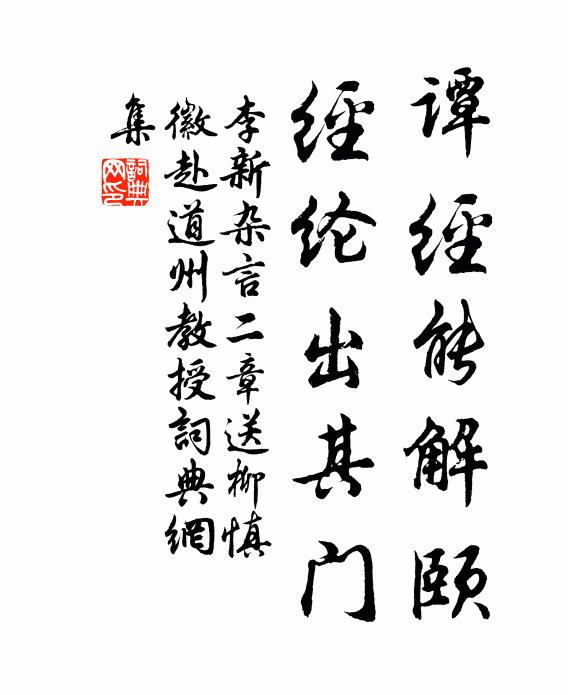 谭經能解颐
經纶出其门
李新杂言二章送柳慎
徽赴道州教授詞典網
集
詞典
网印